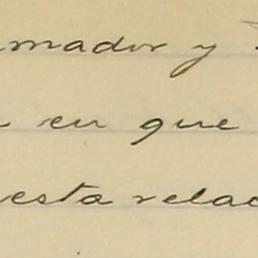 mador y
en que
esta relac